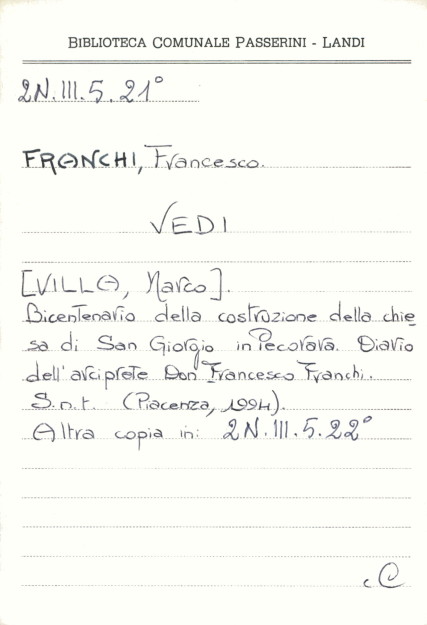 BIBLIOTECA COMUNALE PASSERINI - LANDI
2N.III.5.21°
FRANCHI, Francesco.
VEDI
[VILLA, Marco].
Bicentenario della costruzione della chie
sa di San Giorgio in Pecorara. Diario
dell'arciprete Don Francesco Franchi.
S.n.t. (Piacenza, 1994).
Altra copia in: 2N.III.5.22°